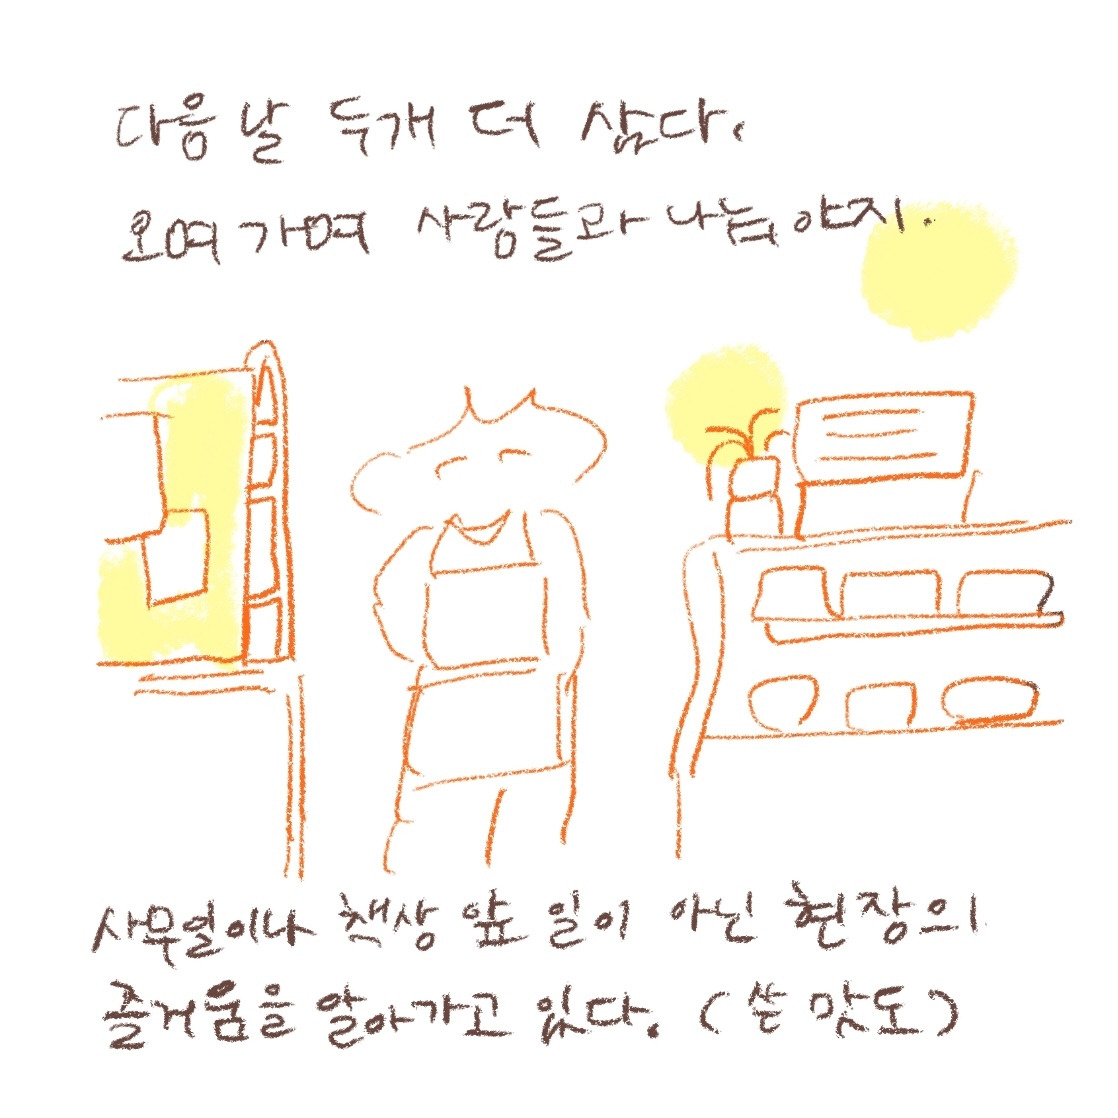 다음날 두개 더 샀다.
오며 가며 사람들과 나눠야지.
사무일이나 책상 앞 일이 아닌 현장의
즐거움을 알아가고 있다. (쓴 맛도)